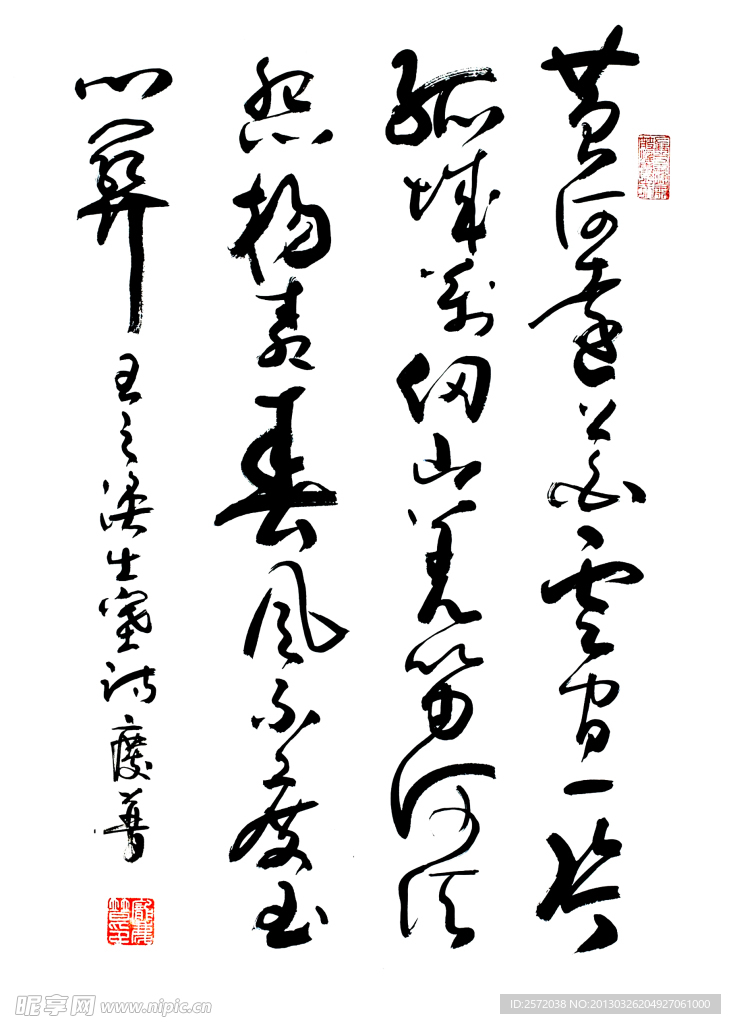 黄河遠上白雲間一片
孤城萬仞山羌笛何須
怨楊柳春風不度玉
門關
王之渙出塞詩慶普
昵享网 www.nipic.cn
ID:2572038 NO:20130326204927061000